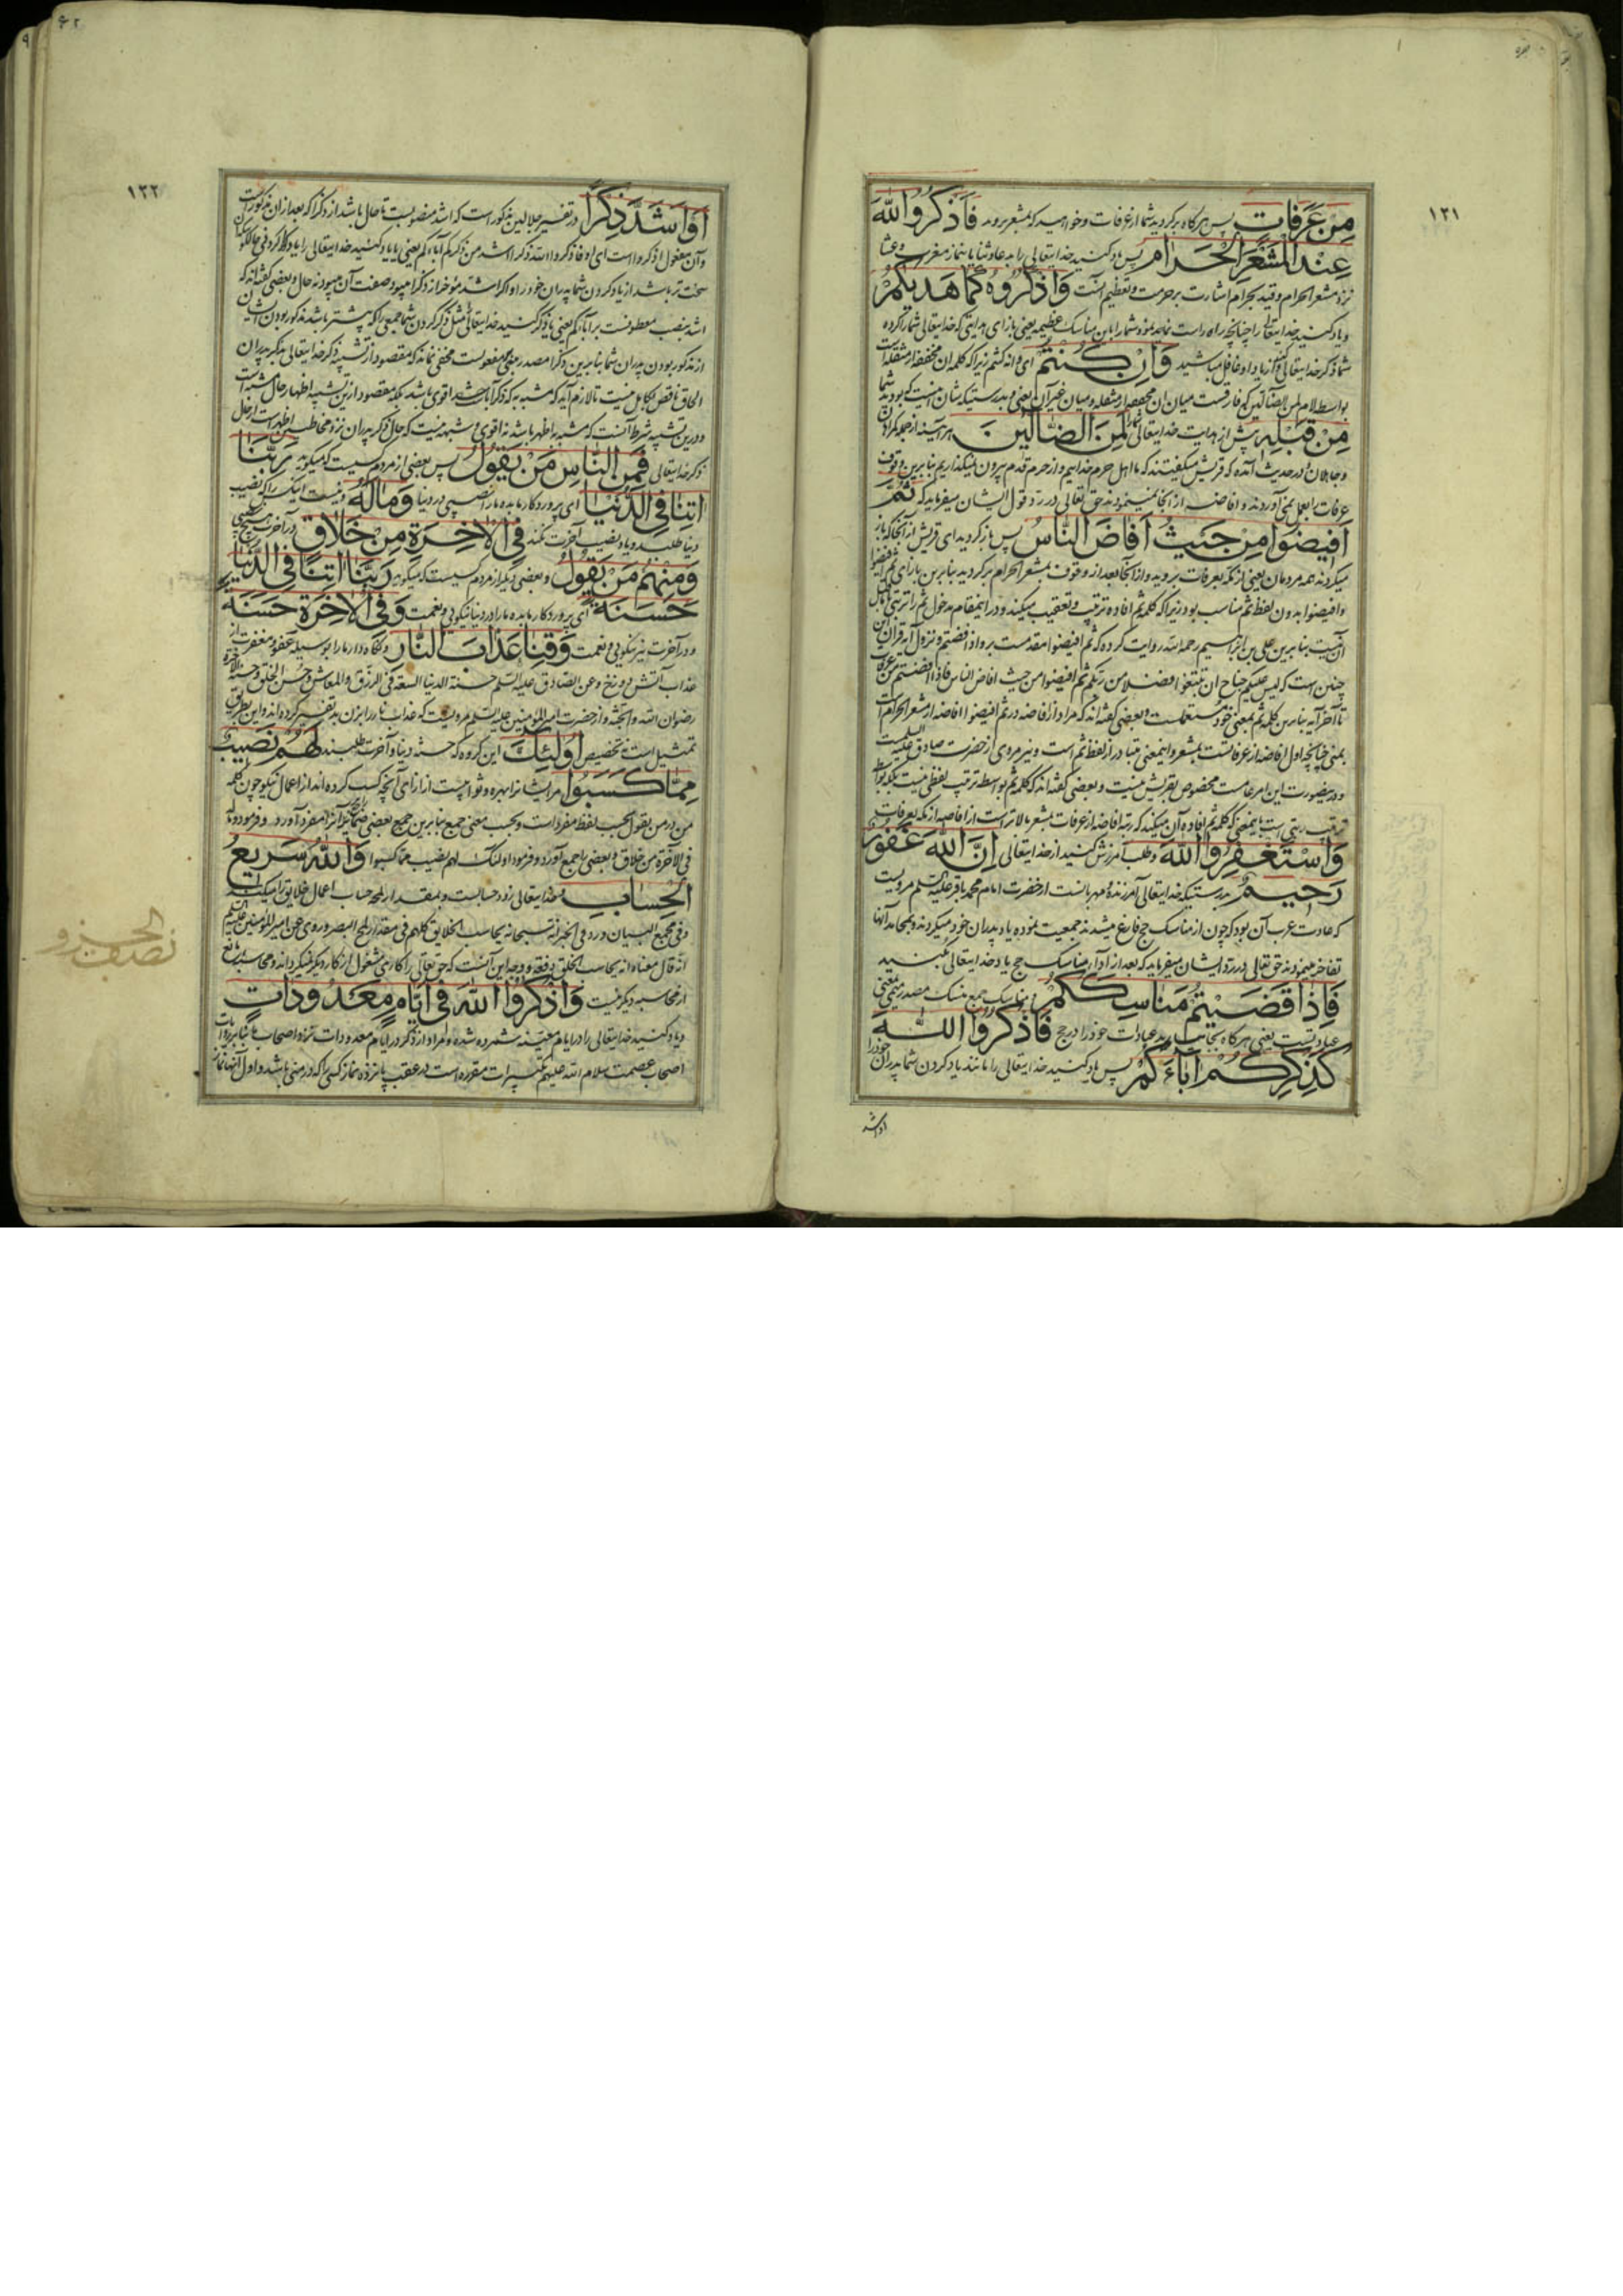 ۱۲۱
مِنْ عَرَفاتٍ پس هرگاه برگردید شما از عرفات و خواهید که بمشعر بروید فَاذْكُرُوا اللّٰهَ
عِنْدَ الْمَشْعَرِ الْحَرامِ پس یاد کنید خدایتعالی را بدعا و ثنا یا بنماز مغرب و عشا
نزد مشعر الحرام و قید بحرام اشارت بر حرمت و تعظیم آنست وَاذْكُرُوهُ كَما هَدیكُمْ
و یاد کنید خدایتعالی را چنانچه راه راست نمایند شما را باین مناسک عظیمه یعنی بازای هدایتی که خدایتعالی شما را کرده
شما ذکر خدایتعالی کنید و از یاد او غافل مباشید وَاِنْ كُنْتُمْ ای و انه کنتم زیرا که کلمه ان مخففه از مثقله است
بواسطه لام لمن الضالین که فارقست میان ان مخففه از مثقله و میان غیر آن یعنی و بدرستیکه شان اینست که بودید شما
مِنْ قَبْلِهِ پیش از هدایت خدایتعالی شما را لَمِنَ الضّالّینَ هر آینه از جمله گمراهان
و جاهلان و در حدیث آمده که قریش میگفتند که ما اهل حرم خداییم و از حرم قدم بیرون نمیگذاریم بنابرین وقوف
عرفات بعمل نمی آوردند و افاضه از آنجا نمینمودند حق تعالی در رد قول ایشان میفرماید که ثُمَّ
اَفیضُوا مِنْ حَیْثُ اَفاضَ النّاسُ پس بازگردید ای قریش از آنجا که باز
میگردند همه مردمان یعنی از مکه بعرفات بروید و از آنجا بعد از وقوف بمشعر الحرام برگردید بنابرین
و افیضوا بدون لفظ ثم مناسب بود زیرا که کلمه ثم افاده ترتیب و تعقیب میکند و در اینمقام مدخول ثم را ترتیبی
آن نیست بنابرین علی بن ابراهیم رحمه الله روایت کرده که ثم افیضوا مقدمست بر فاذا افضتم و نزول آیه قران
چنین است که لیس علیکم جناح ان تبتغوا فضلا من ربکم ثم افیضوا من حیث افاض الناس فاذا افضتم من عرفات
تا آخر آیه بنابرین کلمه ثم بمعنی خود مستعملست و بعضی گفته اند که مراد از افاضه در ثم افیضوا افاضه از مشعر الحرام است
بمنی چنانچه اول افاضه از عرفاتست بمشعر و اینمعنی متبادر از لفظ ثم است و نیز مروی از حضرت صادق علیه السلامست
و در ینصورت این امر عامست مخصوص بقریش نیست و بعضی گفته اند که کلمه ثم بواسطه ترتیب لفظی نیست بلکه بواسطه
ترتیب رتبی است باینمعنی که کلمه ثم افاده آن میکند که رتبه افاضه از عرفات بمشعر بالاتر است از افاضه از مکه بعرفات
وَاسْتَغْفِرُوا اللّٰهَ و طلب آمرزش کنید از خدایتعالی اِنَّ اللّٰهَ غَفُورٌ
رَحیمٌ بدرستیکه خدایتعالی آمرزنده و مهربانست از حضرت امام محمد باقر علیه السلم مرویست
که عادت عرب آن بود که چون از مناسک حج فارغ میشدند جمعیت نموده یاد پدران خود میکردند و بمحامد آنها
تفاخر مینمودند حق تعالی در رد ایشان میفرماید که بعد از ادای مناسک حج یاد خدایتعالی بکنید
فَاِذا قَضَیْتُمْ مَناسِكَكُمْ مناسک جمع منسک مصدر میمی بمعنی
عبادتست یعنی هرگاه بجا آورید عبادات خود را در حج فَاذْكُرُوا اللّٰهَ
كَذِكْرِكُمْ آباءَكُمْ پس یاد کنید خدایتعالی را مانند یاد کردن شما پدران خود را
او اشد
۱۲۲
اَوْ اَشَدَّ ذِكْرًا در تفسیر جلالین مذکور است که اشد منصوبست تا حال باشد از ذکرا که بعد از ان مذکور است
و آن مفعول اذکروا است ای او فاذکروا الله ذکرا اشد من ذکرکم آباءکم یعنی یا یاد کنید خدایتعالی را یاد کردنی
سخت تر باشد از یاد کردن شما پدران خود را و اگر اشد مؤخر از ذکرا میبود صفت آن میبود نه حال و بعضی گفته اند که
اشد بنصب معطوفست بر آباءکم یعنی یا ذکر کنید خدایتعالی مثل ذکر کردن شما جمعی را که بیشتر باشد مذکور بودن ایشان
از مذکور بودن پدران شما بنابرین ذکرا مصدر بمعنی مفعولست مخفی نماند که مقصود از تشبیه ذکر خدایتعالی بذکر پدران
الحاق ناقص بکامل نیست تا لازم آید که مشبه به که ذکر آباست اقوی باشد بلکه مقصود ازین تشبیه اظهار حال مشبه است
و درین تشبیه شرط آنست که مشبه به اظهر باشد نه اقوی و شبهه نیست که حال ذکر پدران نزد مخاطبین اظهر است از حال
ذکر خدایتعالی فَمِنَ النّاسِ مَنْ یَقُولُ پس بعضی از مردم کسیست که میگوید رَبَّنا
اٰتِنا فِی الدُّنْیا ای پروردگار ما بده ما را نصیبی در دنیا وَما لَهُ و نیست اینکس را که نصیب
دنیا طلبد و یاد نصیب آخرت نکند فِی الْاٰخِرَةِ مِنْ خَلاقٍ در آخرت هیچ نصیبی
وَمِنْهُمْ مَنْ یَقُولُ و بعضی دیگر از مردم کسیست که میگوید رَبَّنا اٰتِنا فِی الدُّنْیا
حَسَنَةً ای پروردگار ما بده ما را در دنیا نیکویی و نعمت وَفِی الْاٰخِرَةِ حَسَنَةً
و در آخرت نیز نیکویی و نعمت وَقِنا عَذابَ النّارِ و نگاه دار ما را بوسیله عفو و مغفرت از
عذاب آتش دوزخ و عن الصادق علیه السلم حسنة الدنیا السعة فی الرزق والمعاش وحسن الخلق وحسنة الآخرة
رضوان الله والجنة و از حضرت امیر المؤمنین علیه السلم مرویست که عذاب نار را بزن بد تفسیر کرده اند و این بطریق
تمثیل است نه تخصیص اُولٰئِكَ این گروه که حسنه دنیا و آخرت طلبند لَهُمْ نَصیبٌ
مِمّا كَسَبُوا مر ایشانرا بهره و ثوابیست از ازای آنچه کسب کرده اند از اعمال نیکو چون کلمه
من در من یقول بحسب لفظ مفرد است و بحسب معنی جمع بنابرین جمع بعضی ضمائر را مفرد آورد و فرمود و ما له
فی الآخرة من خلاق و بعضی را جمع آورد و فرمود اولئک لهم نصیب مما کسبوا وَاللّٰهُ سَریعُ
الْحِسابِ و خدایتعالی زود حسابست و بمقدار لمحه حساب اعمال خلایق را میکند
و فی مجمع البیان ورد فی الخبر انه سبحانه یحاسب الخلایق کلهم فی مقدار لمح البصر و روی عن امیر المؤمنین علیه السلم
انه قال معناه انه یحاسب الخلق دفعة و وجه این آنست که حق تعالی را کاری مشغول از کار دیگر نمیگرداند و محاسبه مانع
از محاسبه دیگر نیست وَاذْكُرُوا اللّٰهَ فی اَیّامٍ مَعْدُوداتٍ
و یاد کنید خدایتعالی را در ایام معینه شمرده شده و مراد از ذکر در ایام معدودات نزد اصحاب ما بنابر روایات
اصحاب عصمت سلام الله علیهم تکبیرات مقرره است در عقب پانزده نماز کسی را که در منی باشد و اول آنها نماز
نصف الحزب